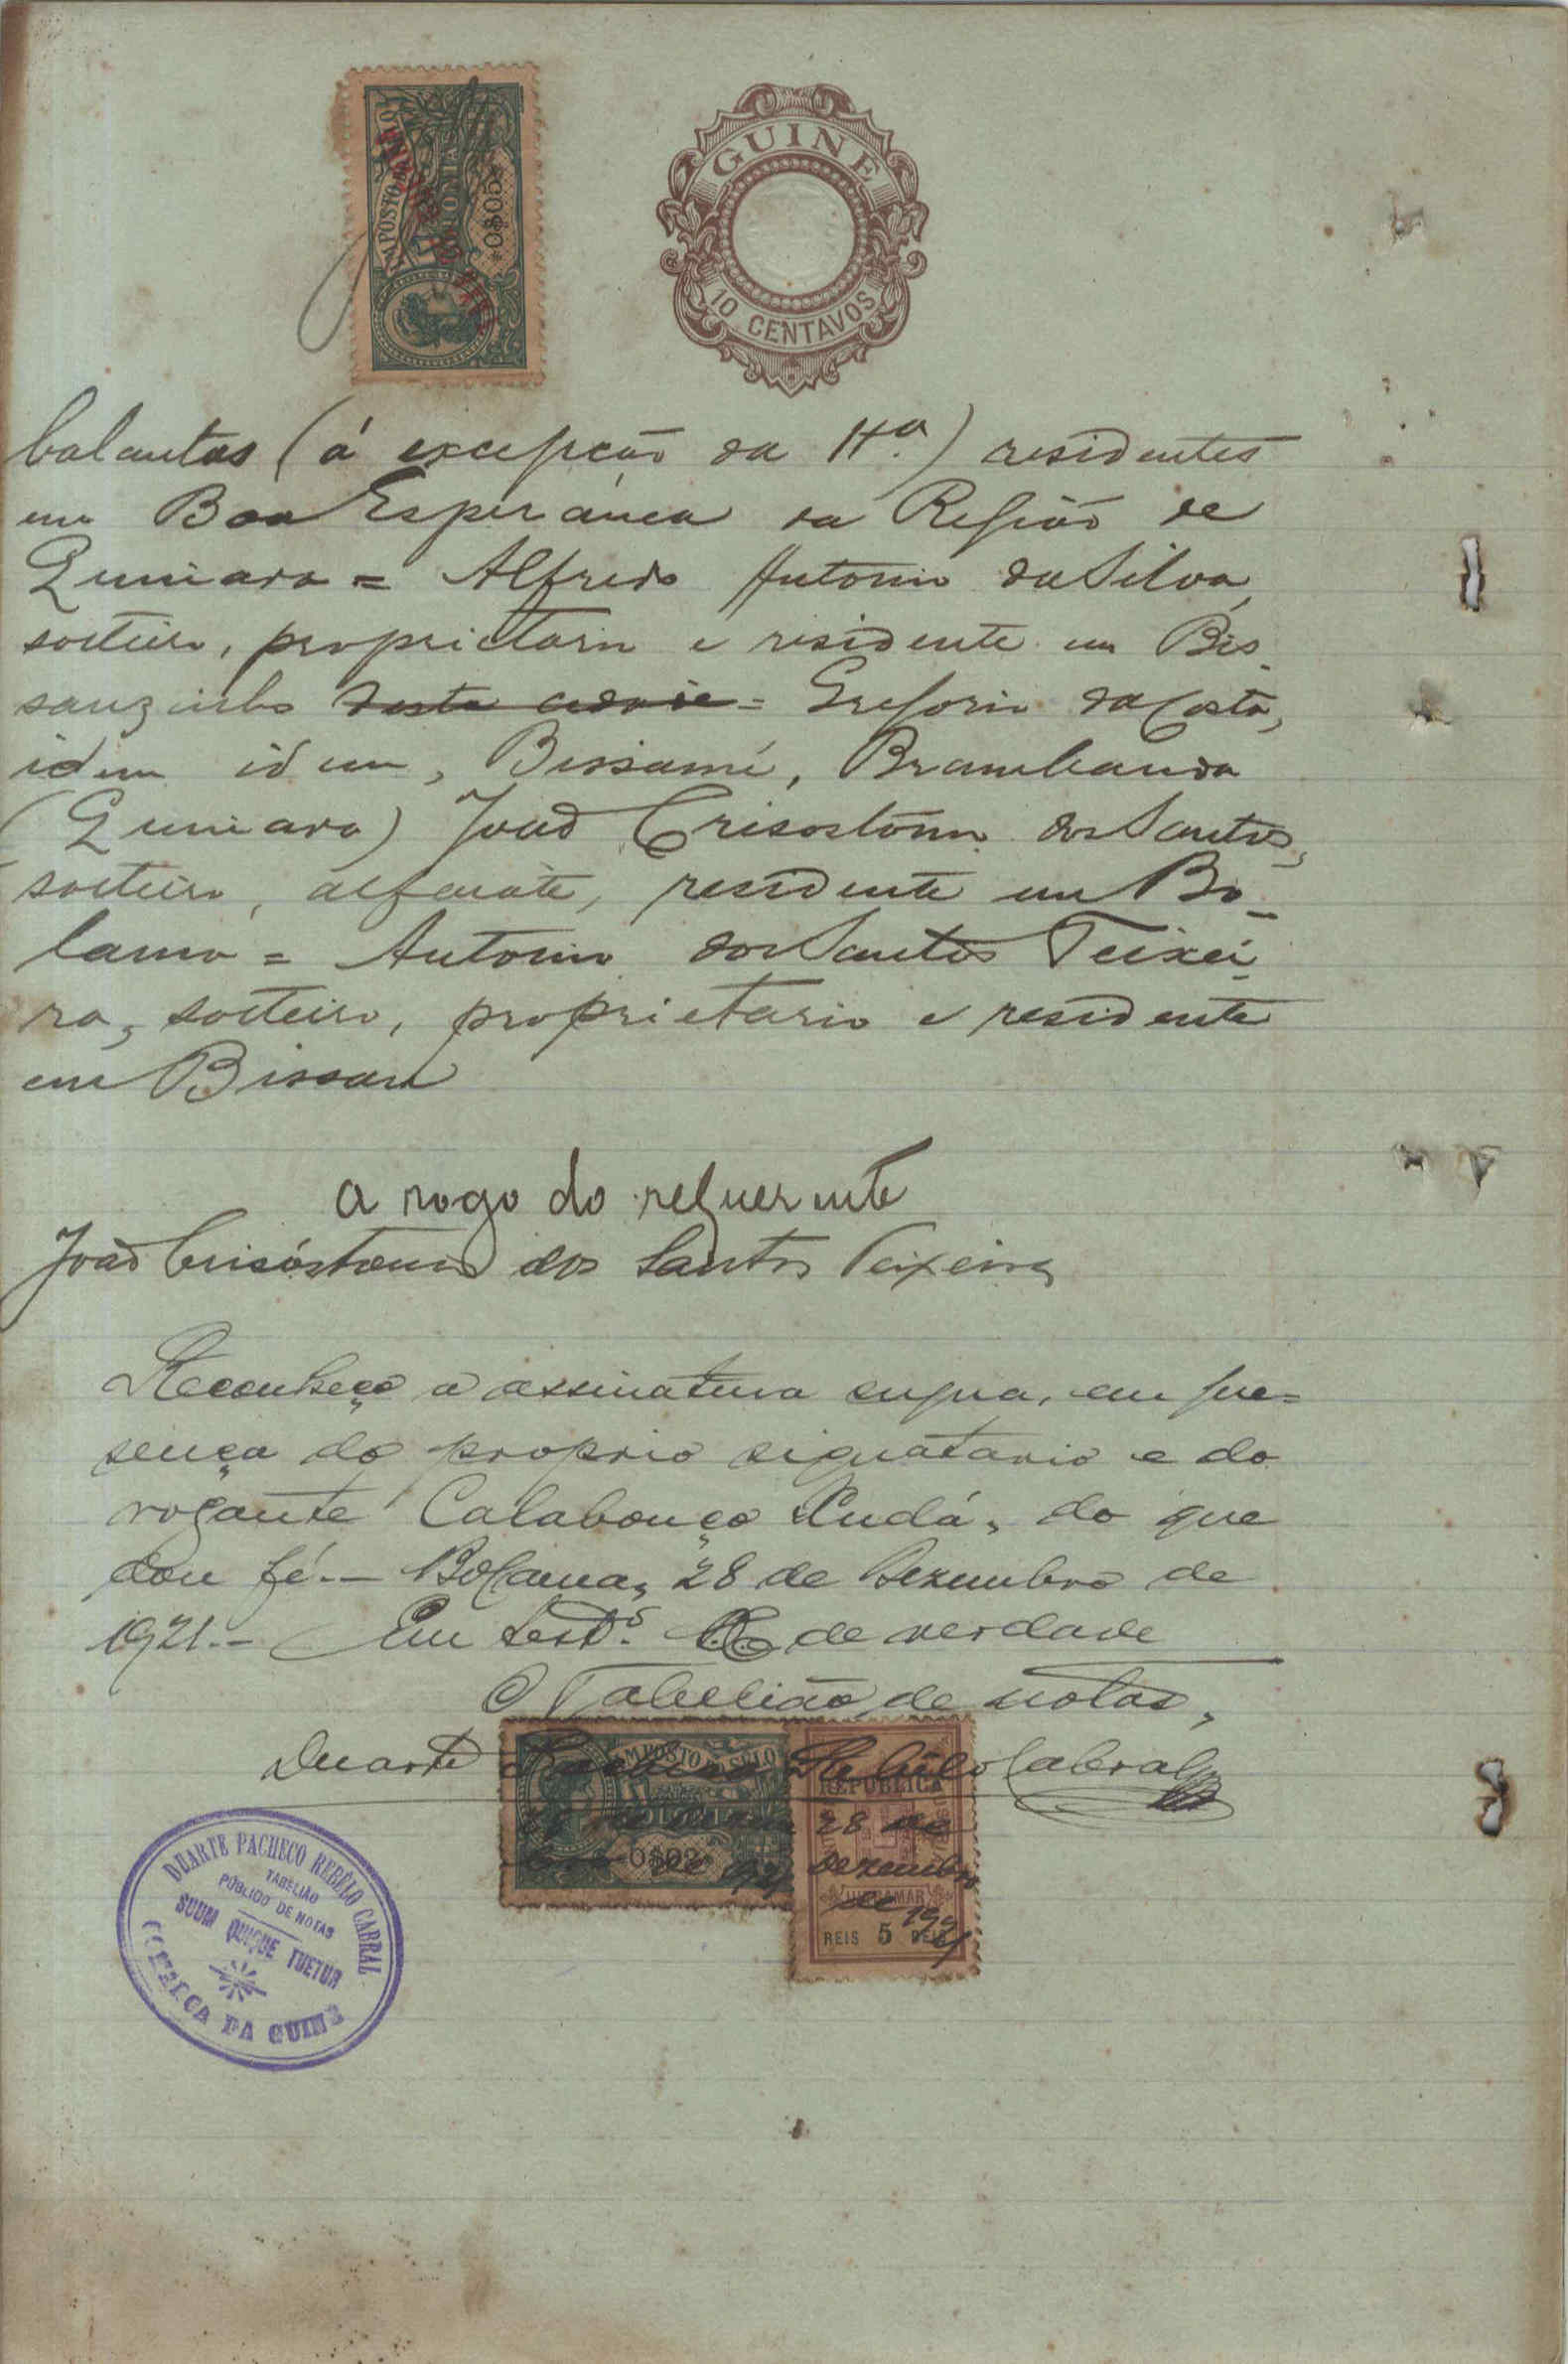 IMPOSTO DO SELO
COLONIAS
0$05
GUINE
10 CENTAVOS
balantas (á excepção da 4ª.) residentes
em Boa Esperança da Região de
Quinara = Alfredo Antonio da Silva,
solteiro, proprietario e residente em Bis-
sauzinho desta cidade = Gregorio da Costa,
idem idem, Bissamé, Brambanda
(Quinara) João Crisostomo dos Santos,
solteiro, alfaiate, residente em Bo-
lama = Antonio dos Santos Teixei-
ra, solteiro, proprietario e residente
em Bissau
a rogo do requerente
João Crisóstomo dos Santos Teixeira
Reconheço a assinatura supra, em pre=
sença do proprio signatario e do
rogante Calabouço Indá, do que
dou fé.— Bolama, 28 de Dezembro de
1921.— Em testº. de verdade
O Tabelião de notas,
Duarte Pacheco Rebêlo Cabral
IMPOSTO DO SELO
COLONIAS
0$02
REPUBLICA
28 de
dezembro
de 1921
ULTRAMAR
REIS 5 REIS
DUARTE PACHECO REBÊLO CABRAL
TABELIÃO
PÚBLICO DE NOTAS
SUUM QUIQUE TUETUR
COMARCA DA GUINÉ